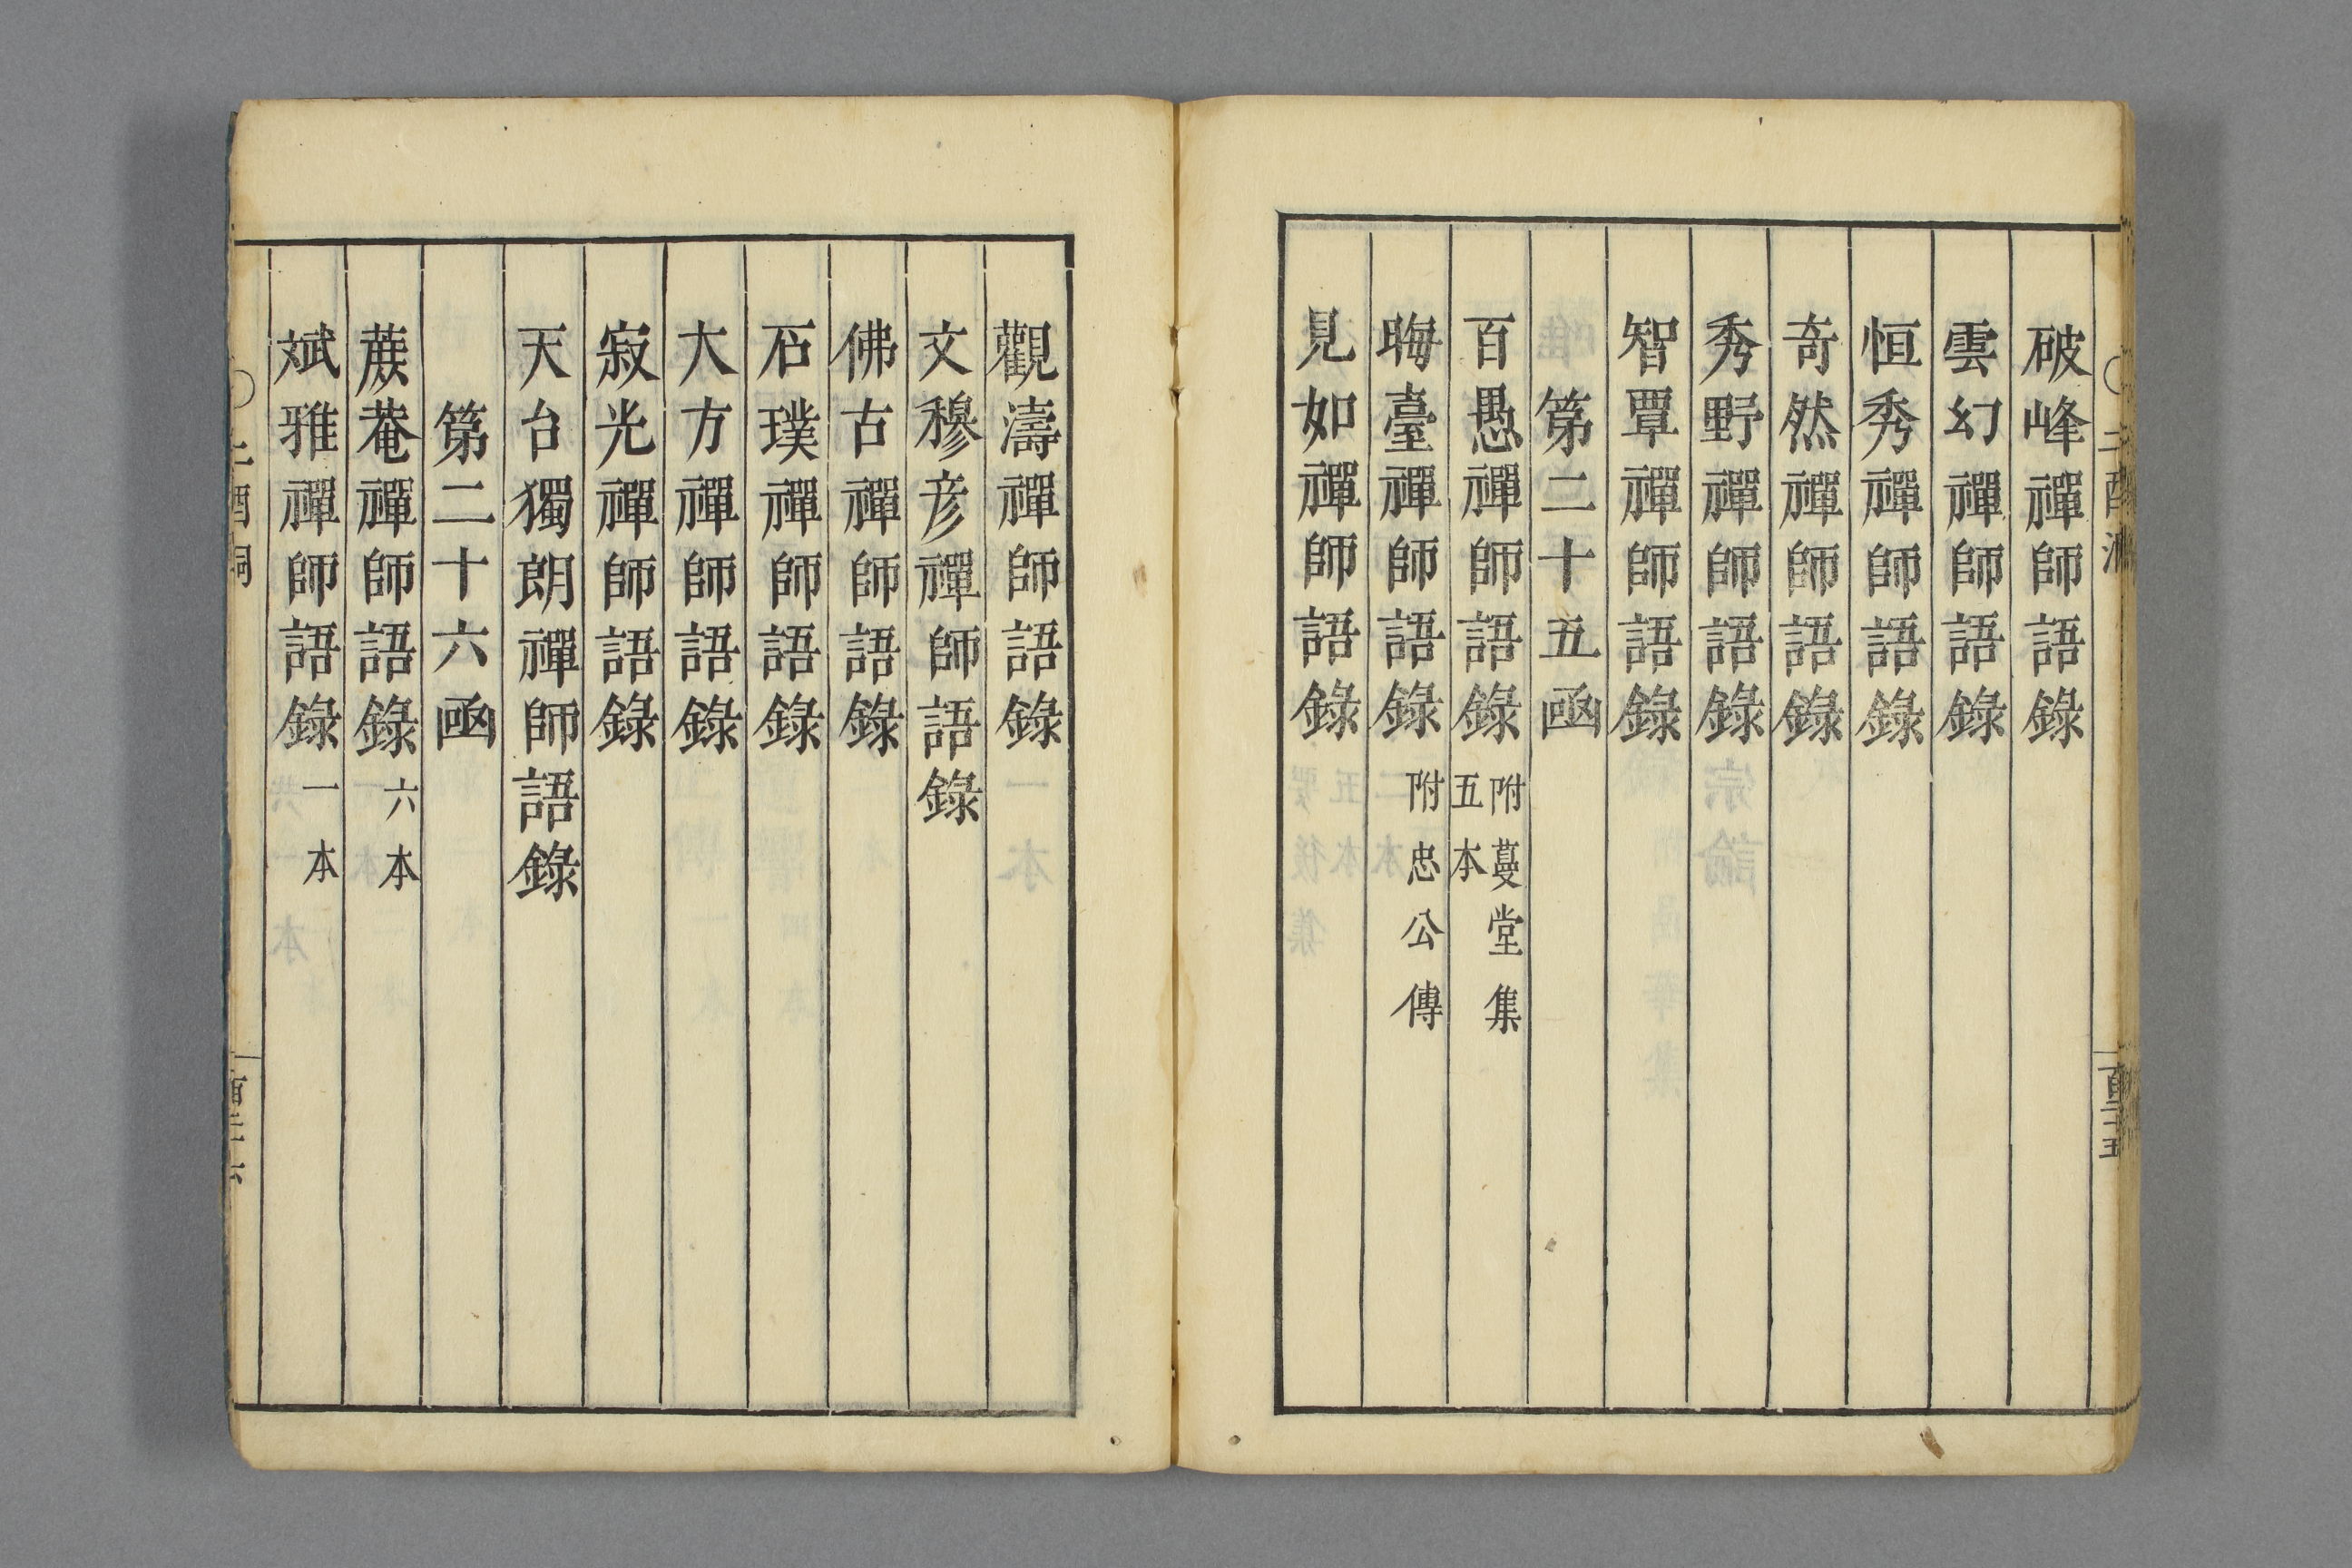 破峰禪師語錄
雲幻禪師語錄
恒秀禪師語錄
奇然禪師語錄
秀野禪師語錄
智覃禪師語錄
第二十五函
百愚禪師語錄 附蔓堂集
五本
晦臺禪師語錄 附忠公傳
見如禪師語錄
觀濤禪師語錄
文穆彦禪師語錄
佛古禪師語錄
石璞禪師語錄
大方禪師語錄
寂光禪師語錄
天台獨朗禪師語錄
第二十六函
蔗菴禪師語錄 六本
斌雅禪師語錄 一本